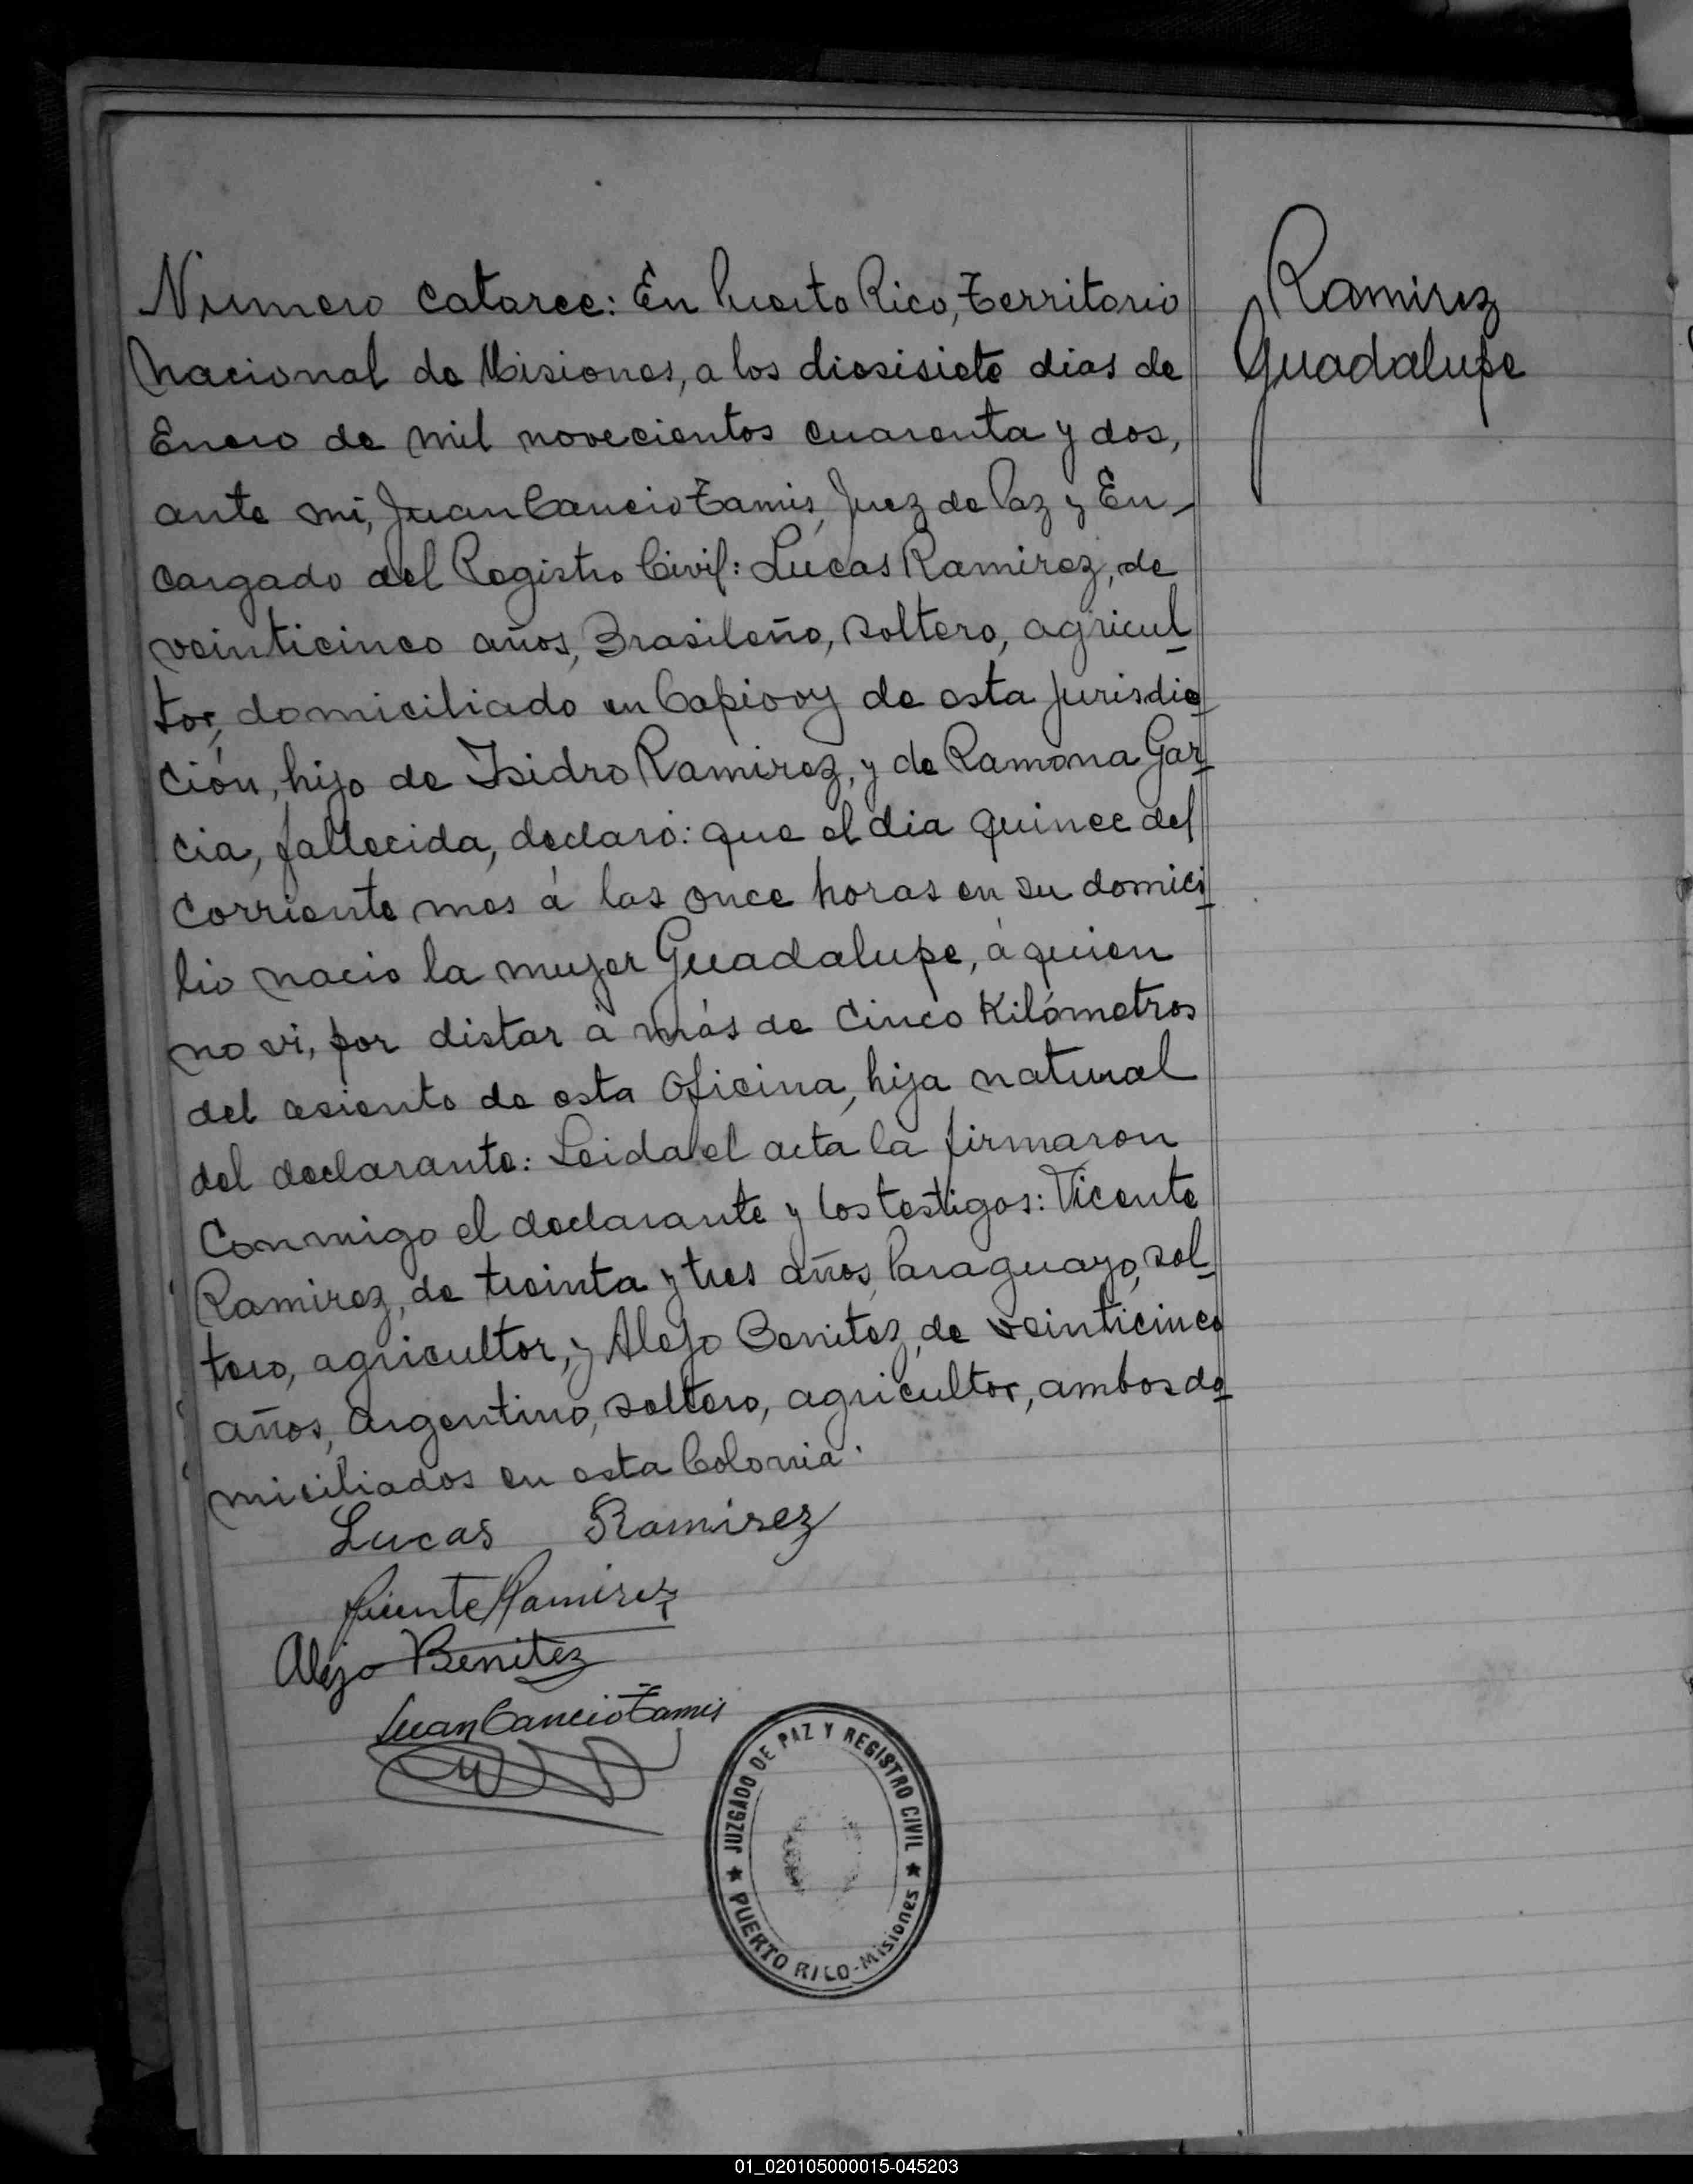 Numero catorce: En Puerto Rico, Territorio
Nacional de Misiones, a los diesisiete dias de
Enero de mil novecientos cuarenta y dos,
ante mi, Juan Cancio Tamis, Juez de Paz y En-
cargado del Registro Civil: Lucas Ramirez, de
veinticinco años, Brasileño, soltero, agricul-
tor, domiciliado en Capiovy de esta jurisdic-
ción, hijo de Isidro Ramirez, y de Ramona Gar-
cia, fallecida, declaró: que el dia quince del
corriente mes á las once horas en su domici-
lio nacio la mujer Guadalupe, á quien
no vi, por distar á más de cinco Kilómetros
del asiento de esta Oficina, hija natural
del declarante: Leida el acta la firmaron
Conmigo el declarante y los testigos: Vicente
Ramirez, de treinta y tres años, Paraguayo, sol-
tero, agricultor, y Alejo Benitez, de veinticinco
años, Argentino, soltero, agricultor, ambos do-
miciliados en esta Colonia.
Ramirez
Guadalupe
Lucas Ramirez
Vicente Ramirez
Alejo Benitez
Juan Cancio Tamis
JUZGADO DE PAZ Y REGISTRO CIVIL
PUERTO RICO-Misiones
01_020105000015-045203